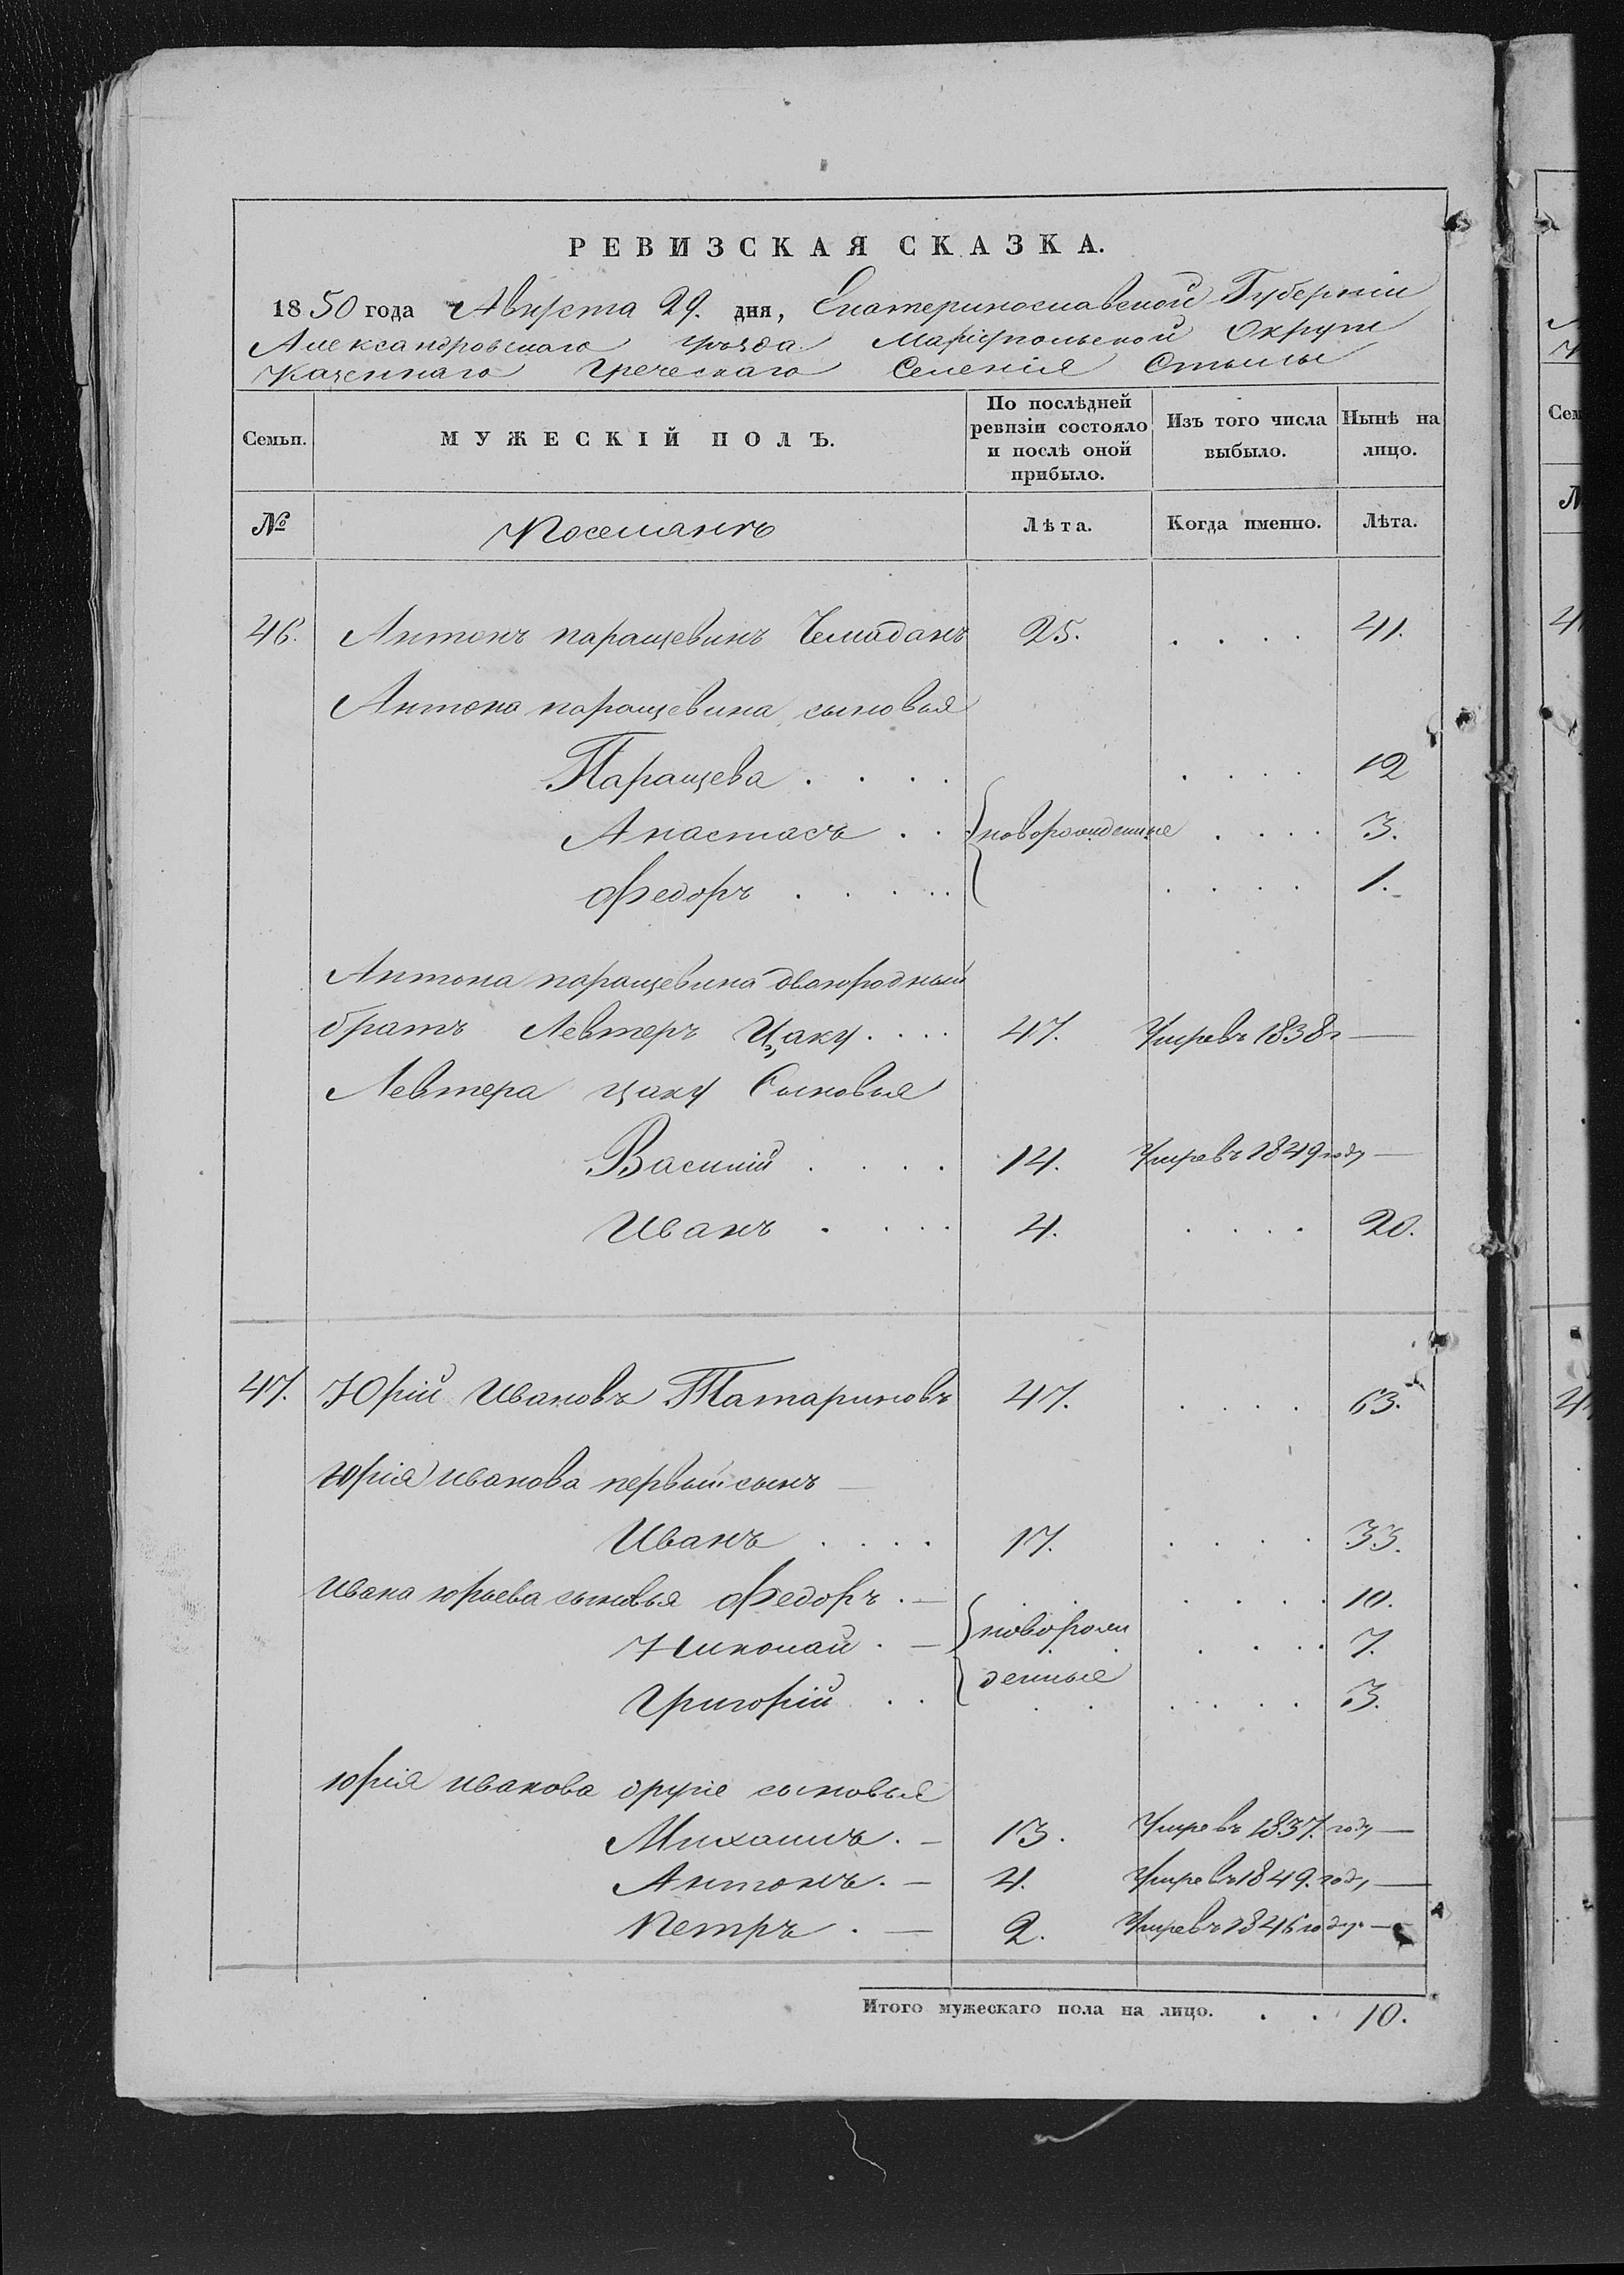 РЕВИЗСКАЯ СКАЗКА.
1850 года Августа 29. дня, Екатеринославской Губерніи
Александровскаго уѣзда Маріупольской Округи
Казеннаго Греческаго Селенія Стылы
Семьи. МУЖЕСКІЙ ПОЛЪ. По послѣдней ревизіи состояло и послѣ оной прибыло. Изъ того числа выбыло. Нынѣ на лицо.
№ Поселянъ Лѣта. Когда именно. Лѣта.
46. Антонъ паращевинъ Чемаданъ 25. . . . . 41.
Антона паращевина сыновья
Паращева . . . . . . . . 12
Анастасъ . . новорожденные . . . . 3.
Федоръ . . . . . . . . . 1.
Антона паращевина двоюродный
братъ Левтеръ Цаку . . . . 47. Умре въ 1838 г —
Левтера цаку Сыновья
Василій . . . . 14. Умре въ 1849 году —
Иванъ . . . . 4. . . . . 20.
47. Юрій Ивановъ Татариновъ 47. . . . . 63.
Юрія Иванова первый сынъ —
Иванъ . . . . 17. . . . . 33.
Ивана юрьева сыновья Федоръ . — . . . . 10.
Николай . — новорож . . . . 7.
Григорій . . денные . . . . 3.
юрія иванова другіе сыновья
Михаилъ . — 13. Умре въ 1837. году —
Антонъ . — 4. Умре въ 1849. году —
Петръ . — 2. Умре въ 1846 году. —
Итого мужескаго пола на лицо. . . 10.